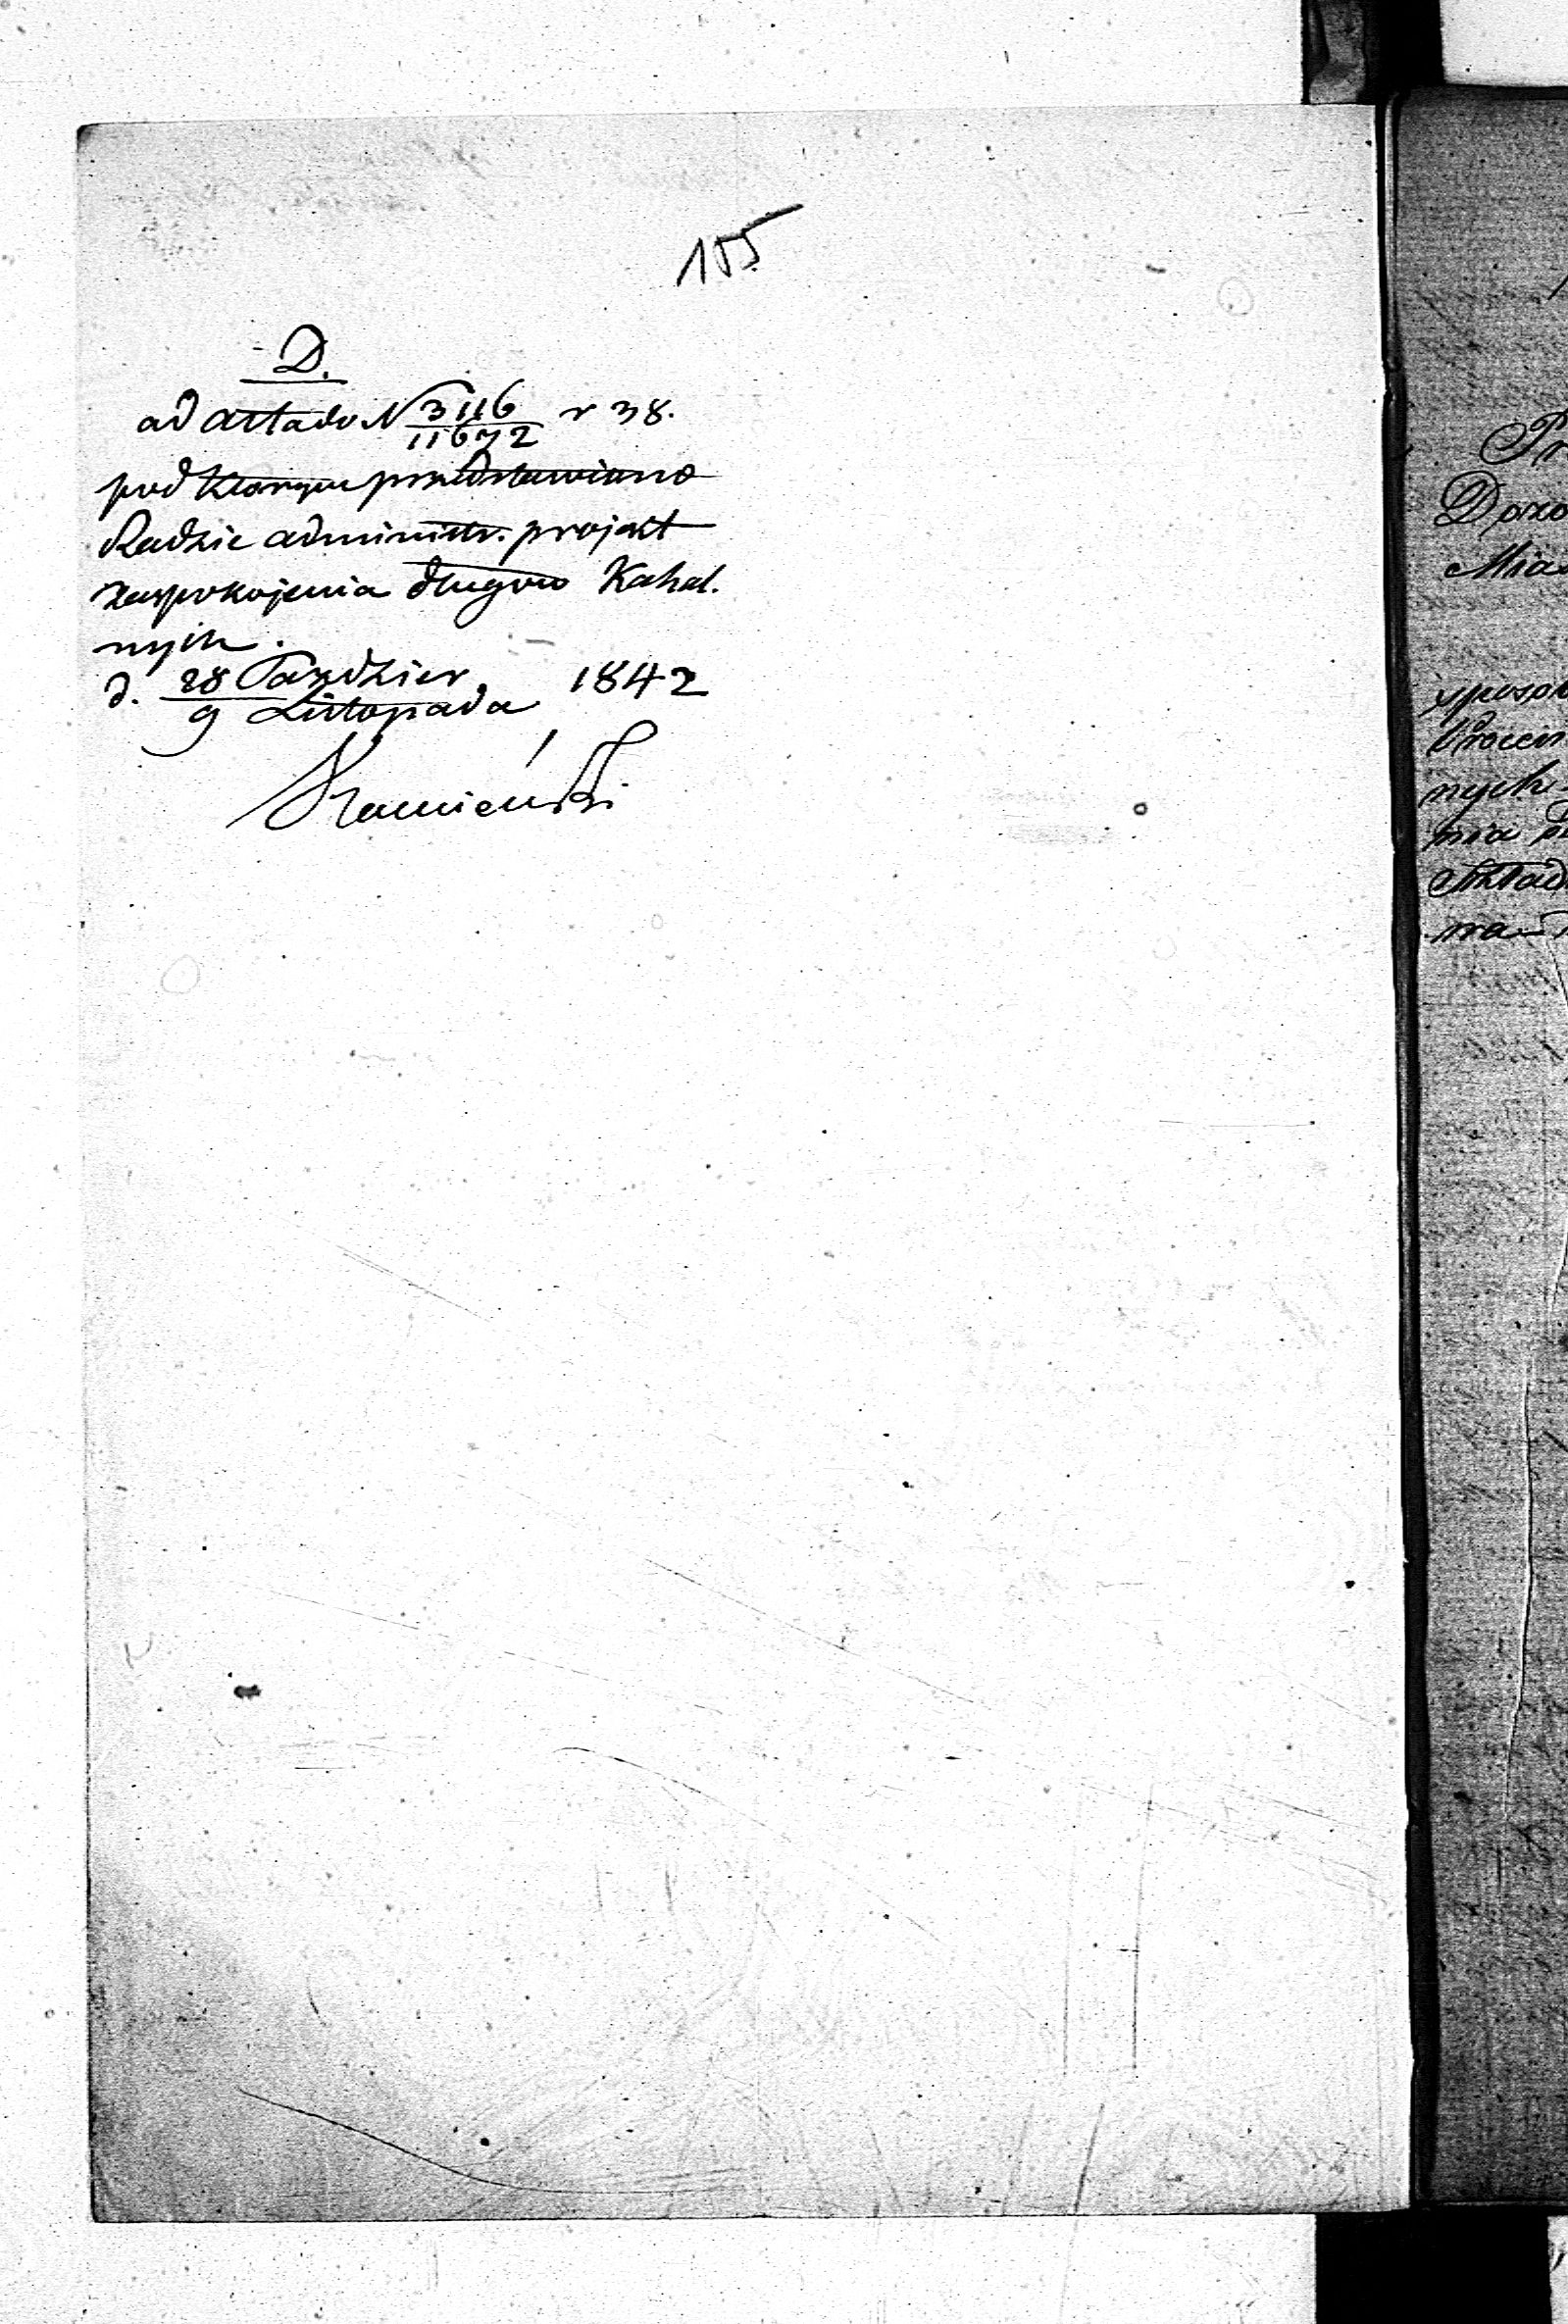 105
D.
ad acta do N 3116/11672 r 38.
pod ktorym przedstawiono
Radzie administr. projekt
zaspokojenia długow Kahal.
nych.
d. 28 Pazdzier./9 Listopada 1842
Kamieński
Pr
Dozo
Mias
sposob
nych
nia
Skład
na